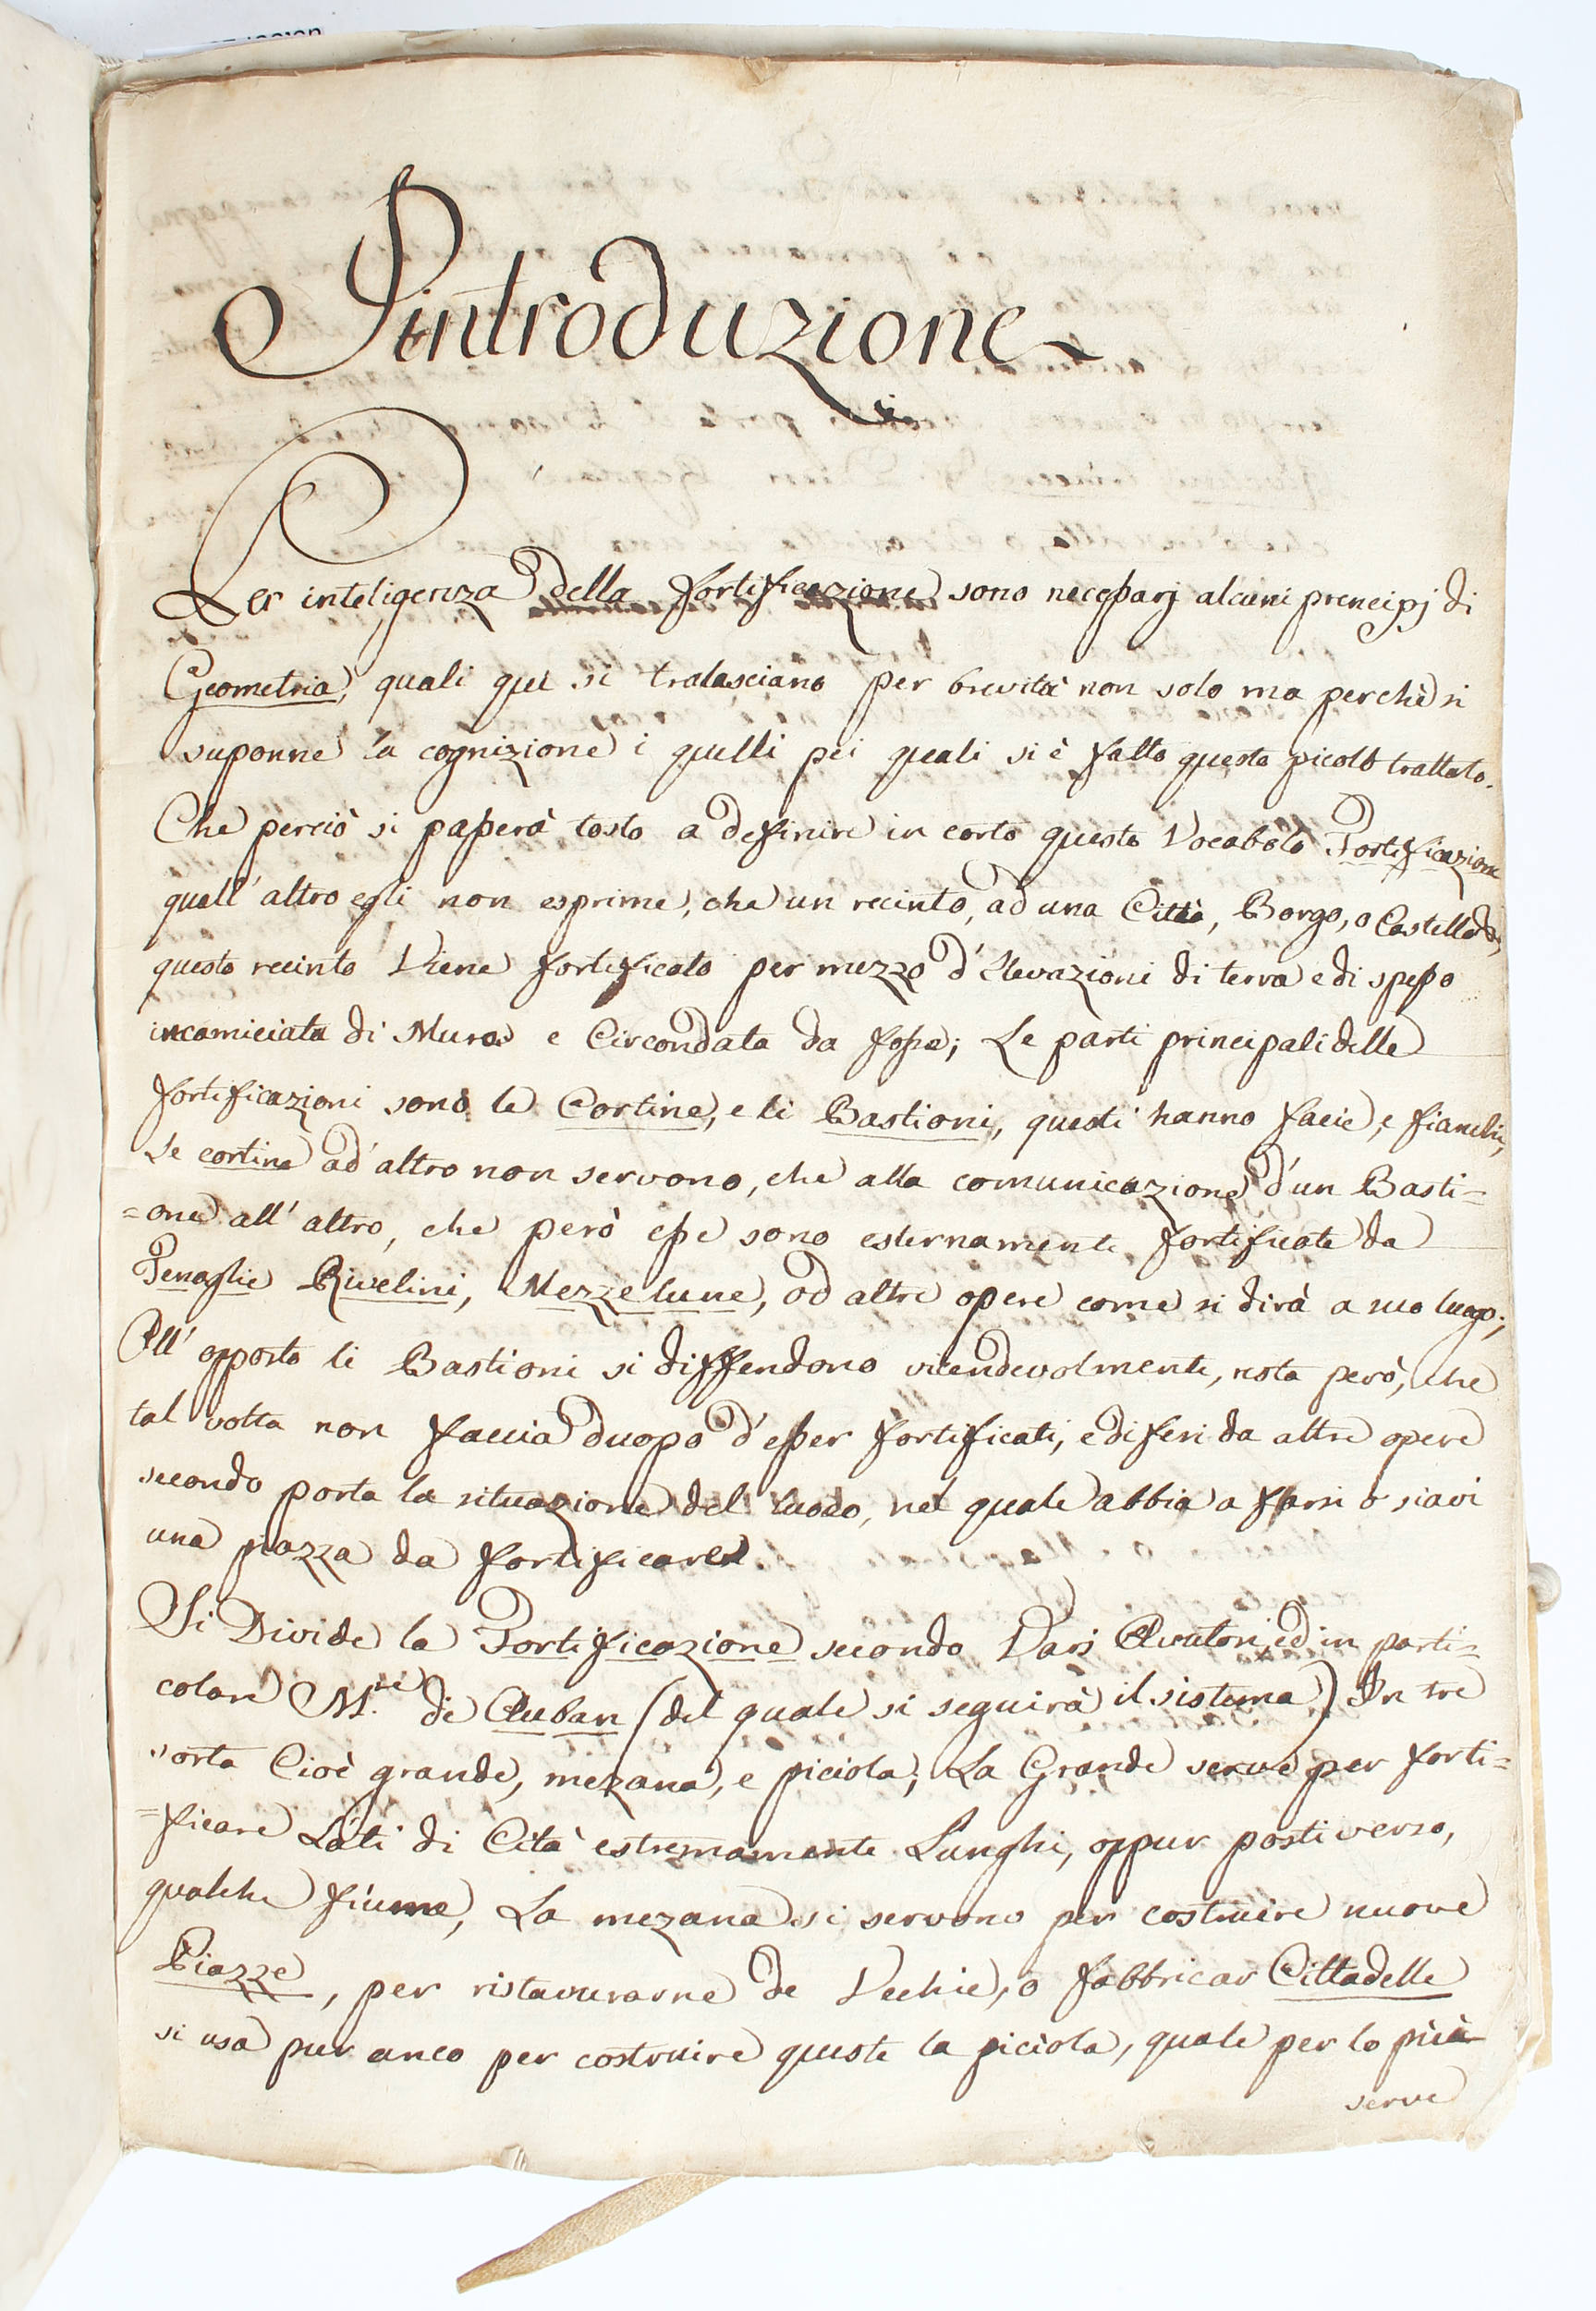 Introduzione
Per inteligenza della fortificazione sono necessarj alcuni prencipj di
Geometria, quali qui si tralasciano per brevità non solo ma perchè si
suponne la cognizione i quelli pei quali si è fatto questo picolo trattato.
Che perciò si passerà tosto a definire in corto questo Vocabolo Fortificazione
quall' altro egli non esprime, che un recinto, ad una Città, Borgo, o Castello
questo recinto Viene fortificato per mezzo d'Elevazioni di terra e di spesso
incamiciata di Muro e Circondata da fossa; Le parti principali delle
fortificazioni sono le Cortine, e li Bastioni, questi hanno facie, e fianchi,
Le cortine ad altro non servono, che alla comunicazione d'un Basti=
=one all' altro, che però esse sono esternamente fortificate da
Tenaglie Rivelini, Mezzelune, od altre opere come si dirà a suo luogo;
All' opposto li Bastioni si diffendono vicendevolmente, nota però, che
tal volta non faccia duopo d'esser fortificati, e difesi da altre opere
secondo porta la situazione del luoco, nel quale abbia a farsi o siavi
una piazza da fortificare
Si Divide la Fortificazione secondo Varj Auutori, ed in parti=
colare M.r de Auban (del quale si seguirà il sistema) In tre
sorta Cioè grande, mezana, e piciola; La Grande serve per forti=
=ficare Lati di Cità estremamente Lunghi, oppur posti verso,
qualche fiume, La mezana si servono per costruire nuove
Piazze, per ristaurarne de Vechie, o fabbricar Cittadelle
si usa pur anco per costruire queste la piciola, quale per lo più
serve